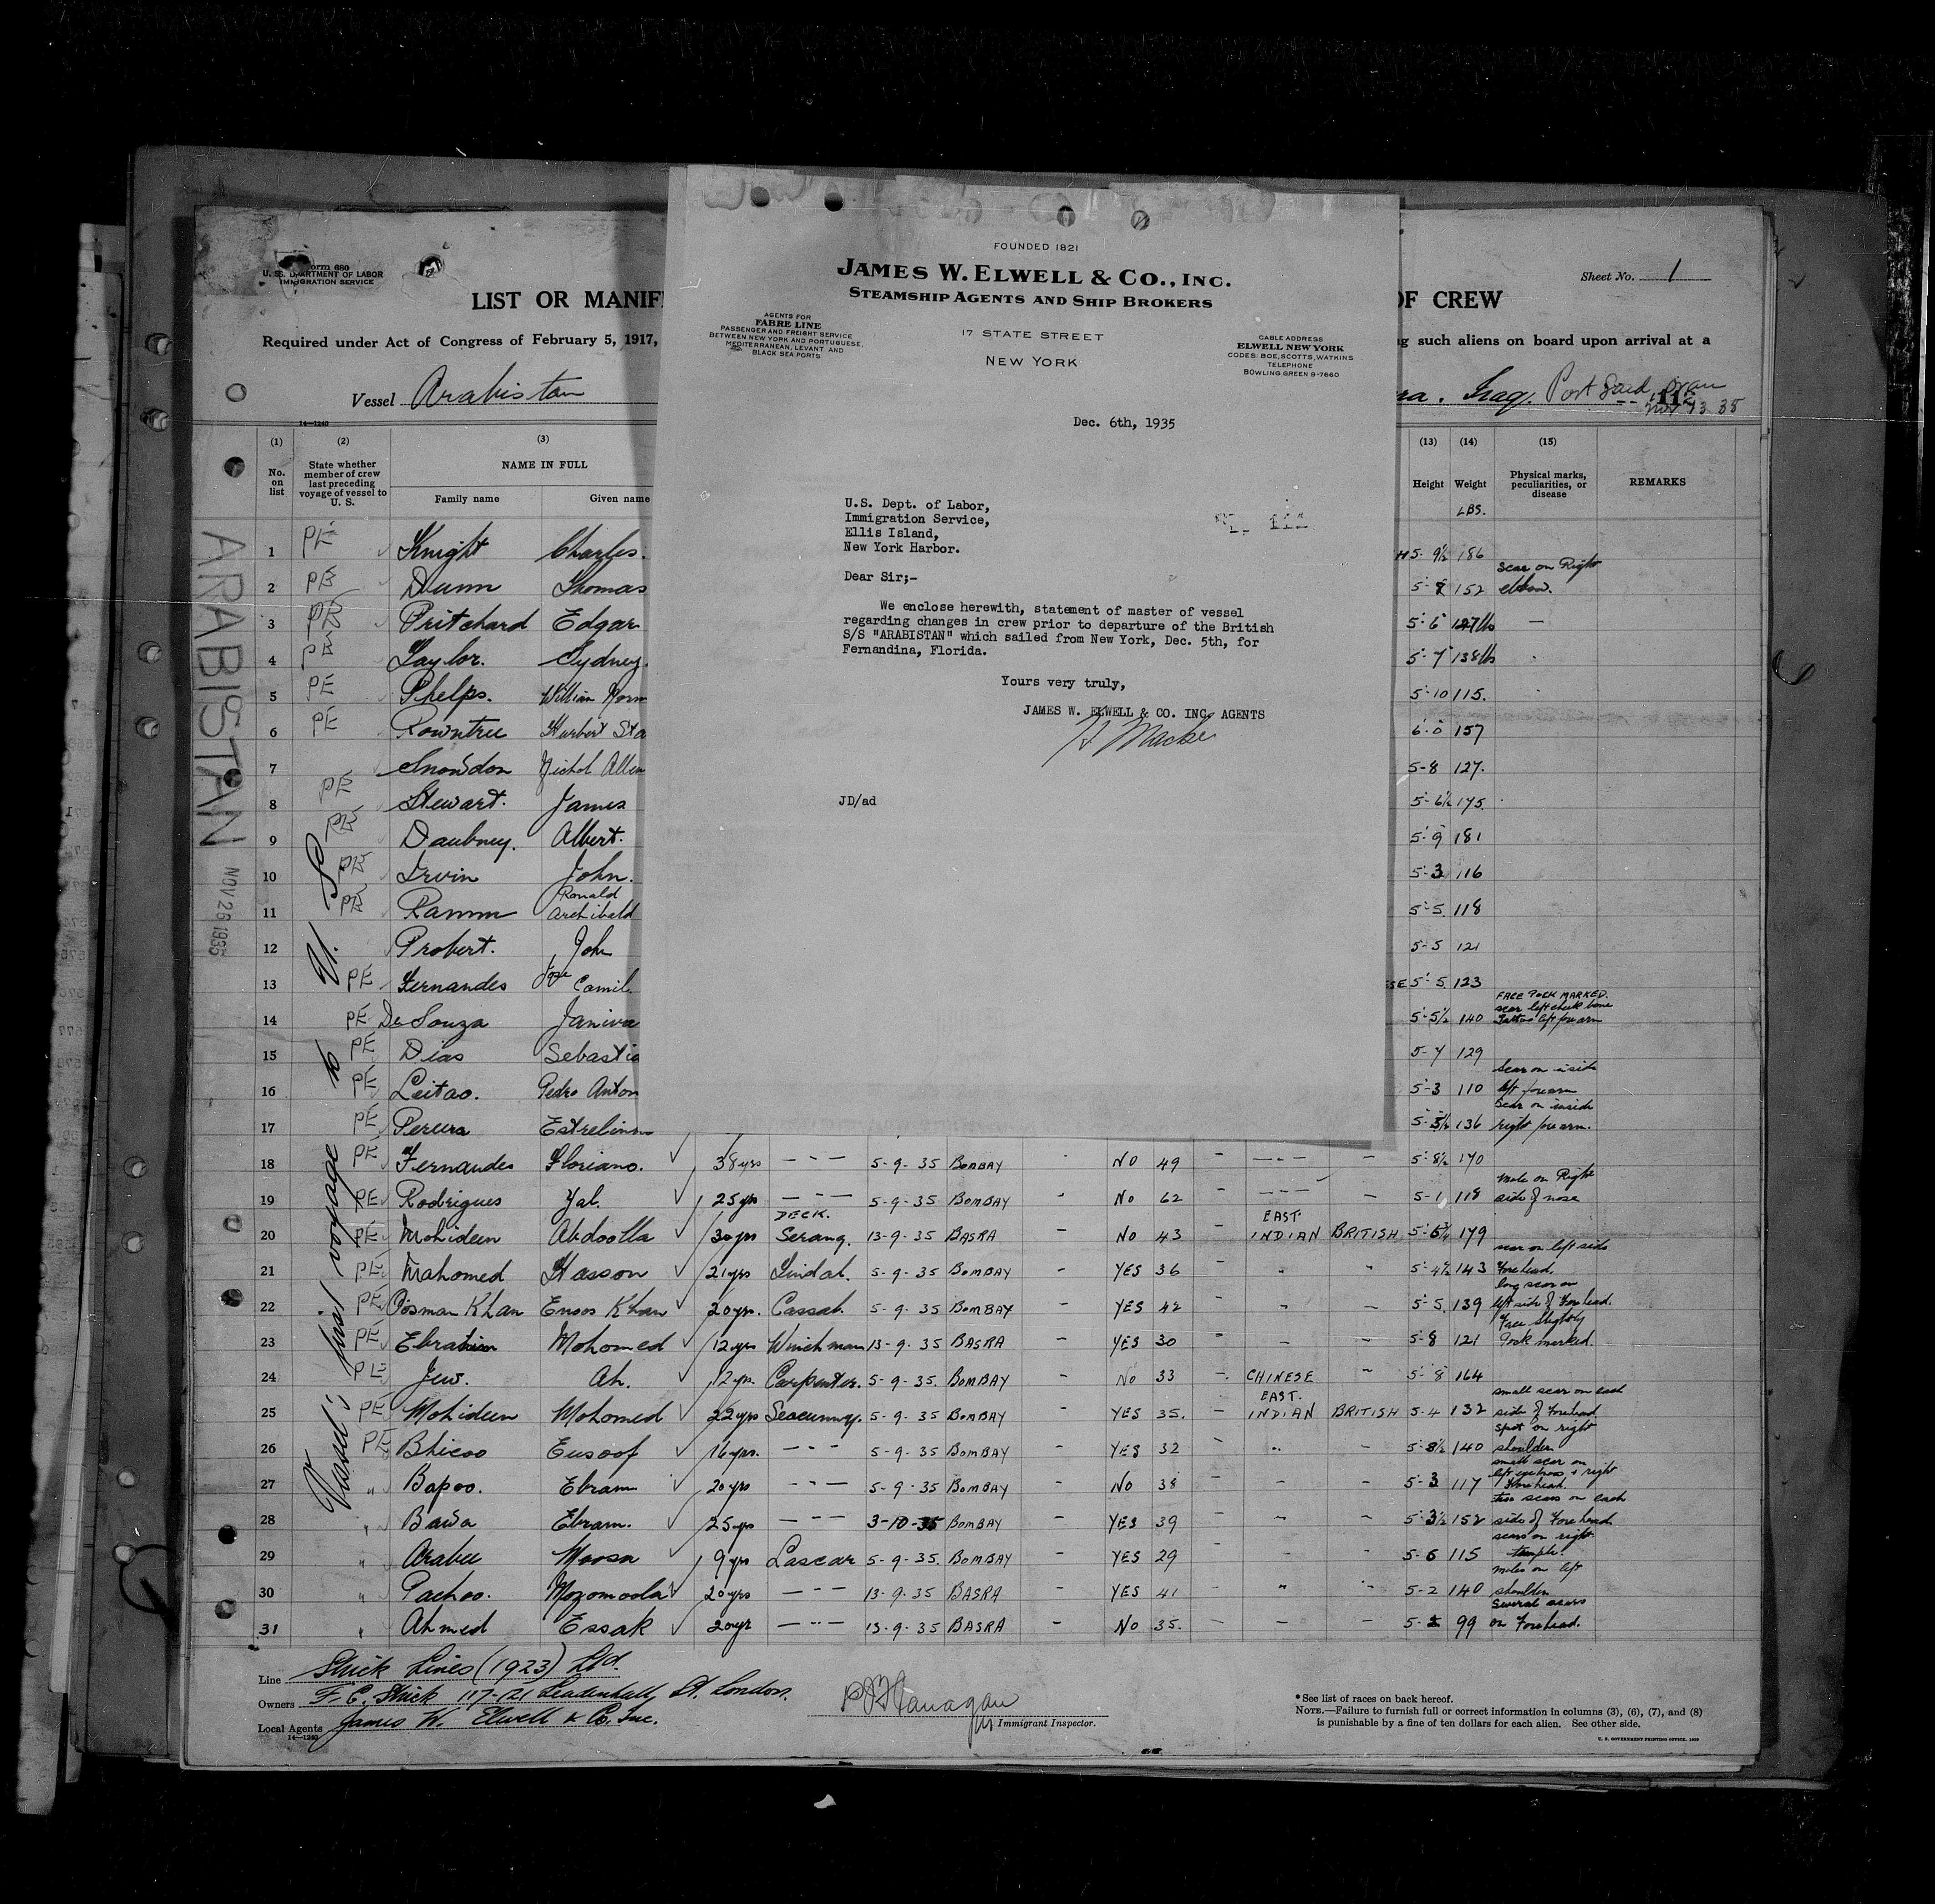 Form 680
U. S. DEPARTMENT OF LABOR
IMMIGRATION SERVICE
LIST OR MANIF
OF CREW
Sheet No. 1
Required under Act of Congress of February 5, 1917,
g such aliens on board upon arrival at a
Vessel Arabistan
ra. Iraq. Port Said, Oran
Nov 13 35
14—1240
(1) No. on list
(2) State whether member of crew last preceding voyage of vessel to U. S.
(3) NAME IN FULL
Family name Given name
(13) Height
(14) Weight LBS.
(15) Physical marks, peculiarities, or disease
REMARKS
ARABISTAN
NOV 26 1935
Vessel's first voyage to U. S.
FOUNDED 1821
JAMES W. ELWELL & CO., INC.
STEAMSHIP AGENTS AND SHIP BROKERS
AGENTS FOR
FABRE LINE
PASSENGER AND FREIGHT SERVICE
BETWEEN NEW YORK AND PORTUGUESE,
MEDITERRANEAN, LEVANT AND
BLACK SEA PORTS
17 STATE STREET
NEW YORK
CABLE ADDRESS
ELWELL NEW YORK
CODES: BOE, SCOTTS, WATKINS
TELEPHONE
BOWLING GREEN 9-7660
Dec. 6th, 1935
U.S. Dept. of Labor,
Immigration Service,
Ellis Island,
New York Harbor.
Dear Sir;-
We enclose herewith, statement of master of vessel
regarding changes in crew prior to departure of the British
S/S "ARABISTAN" which sailed from New York, Dec. 5th, for
Fernandina, Florida.
Yours very truly,
JAMES W. ELWELL & CO. INC. AGENTS
JD/ad
1 PE Knight Charles. 5-9½ 186
2 PE Dunn Thomas 5-8 152 scar on Right elbow.
3 PE Pritchard Edgar 5-6 127lbs —
4 PE Taylor. Sydney. 5-7 138lbs
5 PE Phelps. William Norm 5-10 115.
6 PE Rowntree Herbert Sta 6-0 157
7 Snowdon Nichol Allen 5-8 127.
8 PE Stewart. James 5-6½ 175.
9 PE Daubney. Albert. 5-9 181
10 PE Irvin John. 5-3 116
11 PE Ramm Ronald Archibald 5-5 118
12 Probert. John 5-5 121
13 PE Fernandes Jose Camil SE 5-5 123
14 PE De Souza Janiva 5-5½ 140 FACE POCK MARKED. scar left cheek bone Tattoo left forearm
15 PE Dias Sebastia 5-7 129
16 PE Leitao. Pedro Anton 5-3 110 Scar on inside left forearm
17 PE Pereira Estrelinn 136 Scar on inside right forearm.
18 PE Fernandes Floriano. 38 yrs — " — 5-9-35 BOMBAY - NO 49 - — " — - 5-8½ 170
19 PE Rodrigues Jab. 25 yrs — " — 5-9-35 BOMBAY - No 62 - — - 5-1 118 mole on Right side of nose
20 PE Mohideen Abdoolla 30 yrs DECK. Serang. 13-9-35 BASRA No 43 - EAST INDIAN BRITISH 179
21 PE Mahomed Hasson 21 yrs Tindal. 5-9-35 BOMBAY - YES 36 - " " 5-4½ 143 scar on left side Forehead.
22 PE Oosman Khan Enoos Khan 20 yrs. Cassab. 5-9-35 BOMBAY - YES 42 - " - 5-5 139 long scar on left side of Forehead.
23 PE Ebrahim Mohomed 12 yrs Winchman 13-9-35 BASRA - YES 30 - - - 5-8 121 Face slightly Pock marked.
24 PE Jew. Ah. 12 yrs. Carpenter. 5-9-35. BOMBAY - No 33 - CHINESE " 5-8 164
25 PE Mohideen Mohomed 22 yrs Seacunny. 5-9-35 BOMBAY - YES 35. - EAST. INDIAN BRITISH 5-4 132 small scar on each side of Forehead
26 PE Bhicoo Eusoof 16 yrs. - - - 5-9-35 BOMBAY - YES 32 - " - 5-8½ 140 spot on right shoulder
27 " Bapoo. Ebram 20 yrs - " - 5-9-35 BOMBAY - No 38 - - - 5-3 117 small scar on left eyebrow & right Forehead.
28 " Bawa Ebram. 25 yrs - - - 3-10-35 BOMBAY - YES 39 - " - 5-3½ 152 two scars on each side of Forehead
29 " Arabee Moosa 9 yrs Lascar 5-9-35. BOMBAY - YES 29 - - - 5-6 115 scars on right temple.
30 " Pachoo. Mozomoola 20 yrs - - - 13-9-35 BASRA - YES 41 - " - 5-2 140 moles on left shoulder
31 " Ahmed Essak 20 yr - " - 13-9-35 BASRA - No 35. - - - 99 Several scars on Forehead.
Line Strick Lines (1923) Ltd.
Owners F. C. Strick 117-121 Leadenhall St. London.
Local Agents James W. Elwell & Co. Inc.
14—1240
P J Flanagan
Immigrant Inspector.
* See list of races on back hereof.
NOTE.—Failure to furnish full or correct information in columns (3), (6), (7), and (8)
is punishable by a fine of ten dollars for each alien. See other side.
U. S. GOVERNMENT PRINTING OFFICE. 1930